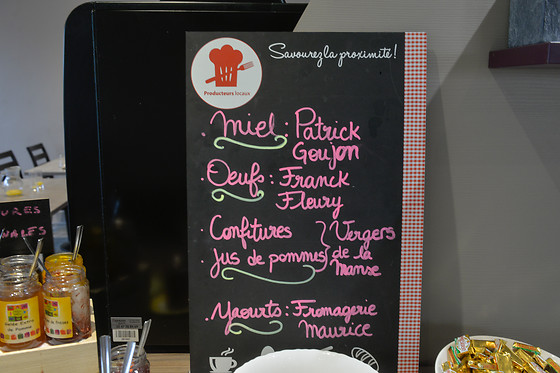 Savourez la proximité !
Producteurs locaux
. Miel : Patrick
Goujon
. Oeufs : Franck
Fleury
. Confitures } Vergers
. Jus de pommes } de la
Manse
. Yaourts : Fromagerie
Maurice
URES
NALES